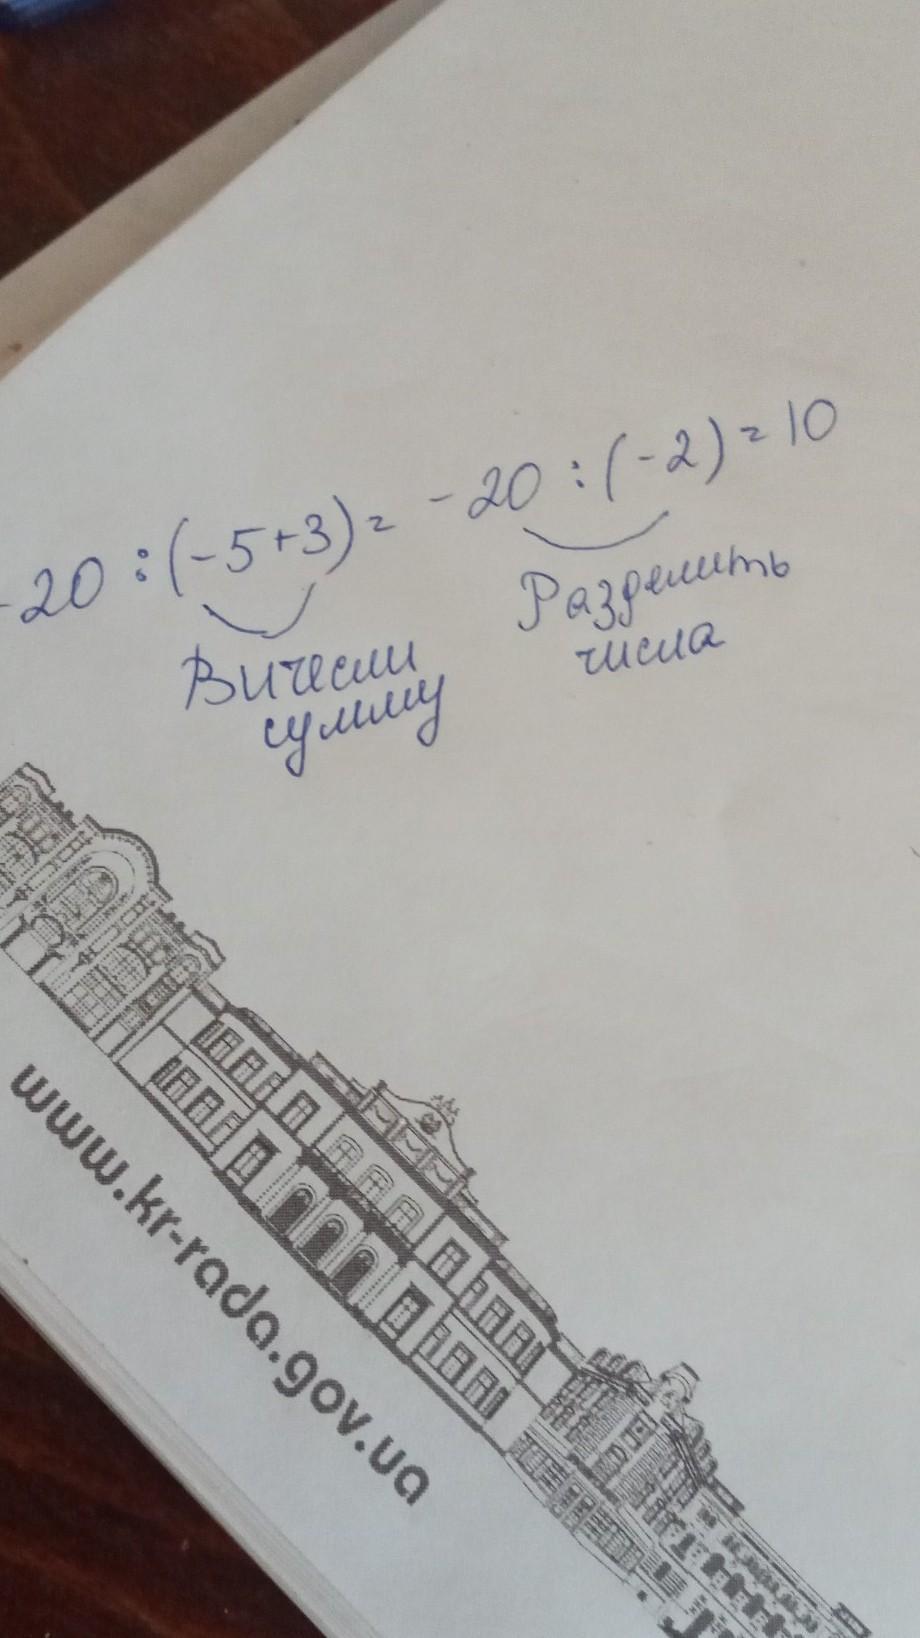 -20 : (-5+3) = -20 : (-2) = 10
Вичесли
сумму
Разделить
числа
www.kr-rada.gov.ua